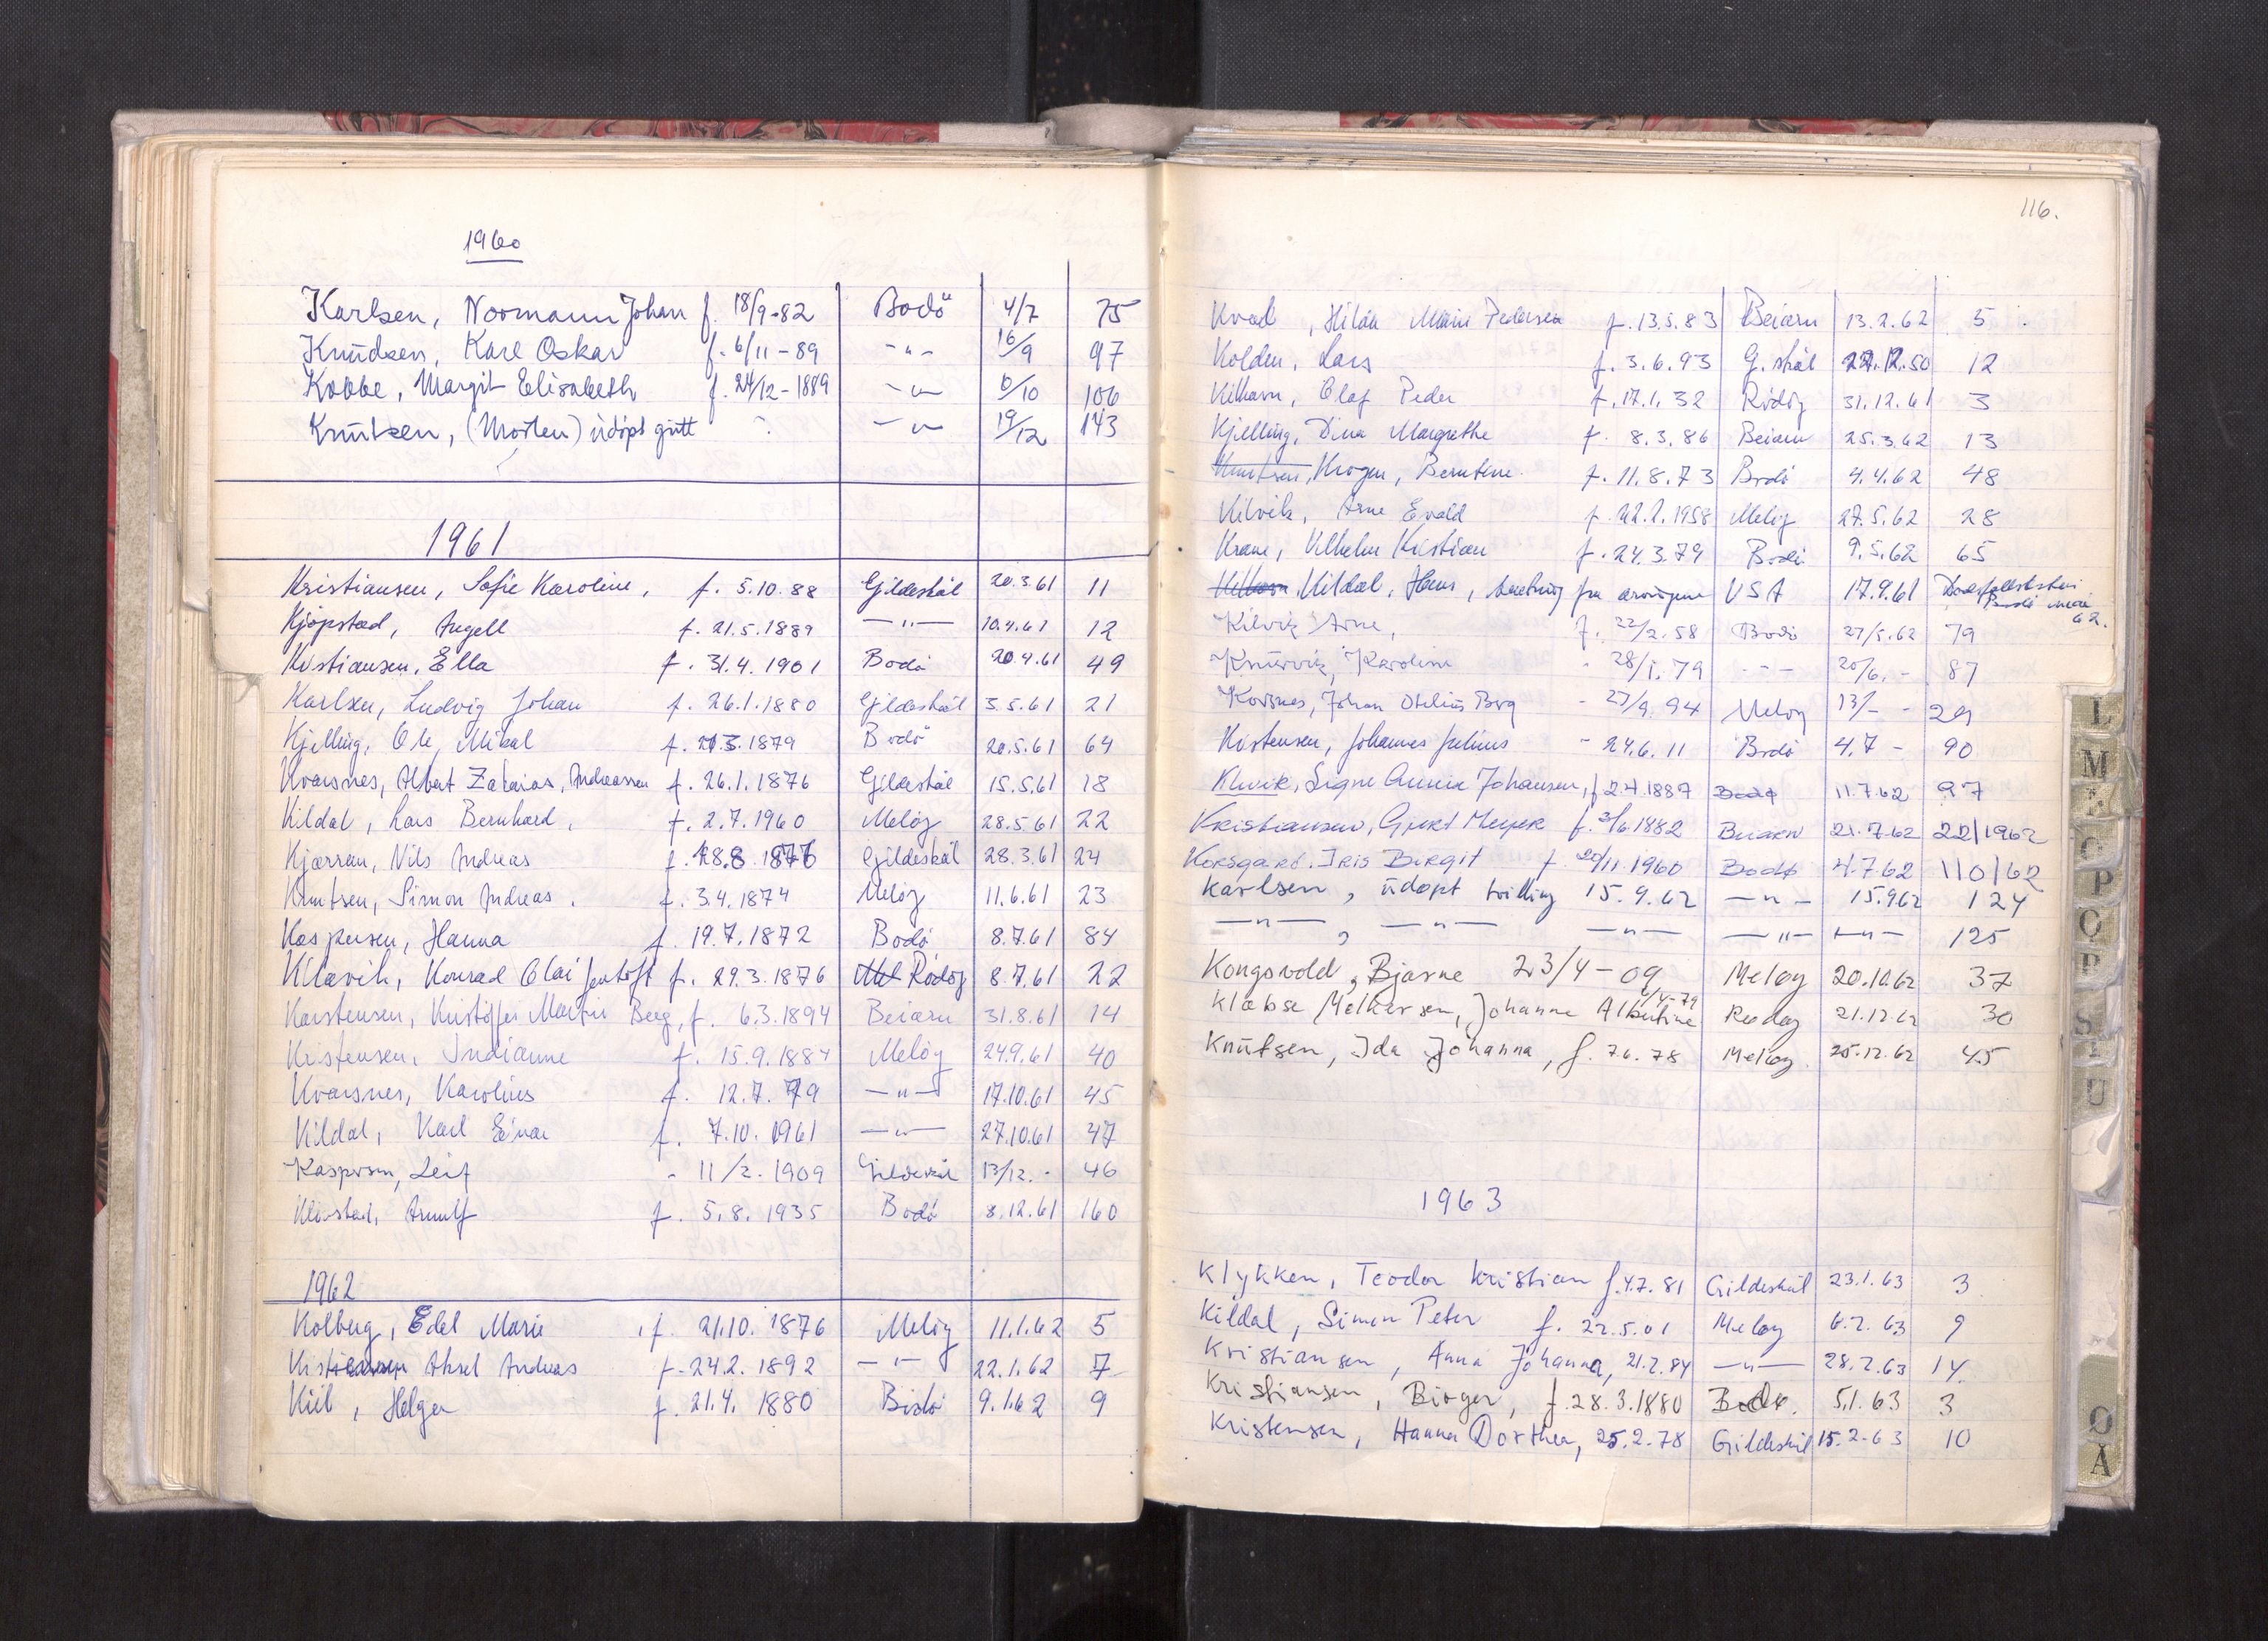 1960
Karlsen, Normann Johan f. 18/9-82 Bodö 4/7 75
Knudsen, Karl Oskar f. 6/11-89 -"- 16/9 97
Kobbe, Margit Elisabeth f. 24/12-1889 -"- 6/10 106
Knutsen, (Morten) udöpt gutt -"- 19/12 143
1961
Kristiansen, Sofie Karoline, f. 5.10.88 Gildeskål 20.3.61 11
Kjøpstad, Angell f. 21.5.1889 -"- 10.4.61 12
Kristiansen, Ella f. 31.4.1901 Bodø 20.4.61 49
Karlsen, Ludvig Johan f. 26.1.1880 Gildeskål 3.5.61 21
Kjelling, Ole, Mikal f. 21.3.1879 Bodø 20.5.61 64
Kvarsnes, Albert Zakarias, Andreassen f. 26.1.1876 Gildeskål 15.5.61 18
Kildal, Lars Bernhard, f. 2.7.1960 Meløy 28.5.61 22
Kjærran, Nils Andreas f. 28.8.1876 Gildeskål 28.3.61 24
Knutsen, Simon Andreas. f. 3.4.1874 Meløy 11.6.61 23
Kaspersen, Hanna f. 19.7.1872 Bodø 8.7.61 84
Kilavik, Konrad Olai Jentoft f. 29.3.1876 Mel Rødøy 8.7.61 22
Karstensen, Kristoffer Martin Berg, f. 6.3.1894 Beiarn 31.8.61 14
Kristensen, Indianne f. 15.9.1884 Meløy 24.9.61 40
Kvarsnes, Karolius f. 12.7.79 -"- 17.10.61 45
Kildal, Karl Einar f. 7.10.1961 -"- 27.10.61 47
Kaspersen, Leif - 11/2.1909 Gildeskål 13/12.- 46
Arnulf f. 5.8.1935 Bodø 8.12.61 160
1962
Kolberg, Edel Marie, f. 21.10.1876 Meløy 11.1.62 5
Kristiansen Aksel Andreas f. 24.2.1892 -"- 22.1.62 7
Kiil, Helga f. 21.4.1880 Bodø 9.1.62 9
116.
Kvad, Hilda Marie Pedersen f. 13.5.83 Beiarn 13.2.62 5
Kolden, Lars f. 3.6.93 G.skål 27.12.50 12
Kilhavn, Olaf Peder f. 17.1.32 Rødøy 31.12.61 3
Kjelling, Dina Margrethe f. 8.3.86 Beiarn 25.3.62 13
Knutsen, Krogen, Berntine. f. 11.8.73 Bodø 4.4.62 48
Kilvik, Arne Evald f. 22.2.1958 Meløy 27.5.62 28
Krane, Vilhelm Kristian f. 24.3.79 Bodø 9.5.62 65
Kildal, Hans, USA 17.9.61 62.
Kilvik Arne, f. 22/2.58 Bodø 27/5.62 79
Knurvik, Karoline - 28/1.79 -"- 20/6.- 87
Korsnes, Johan Otelius Berg - 27/9.94 Meløy 13/- - 29
Kristensen, Johannes Julius - 24.6.11 Bodø 4.7 - 90
Signe Annie Johansen, f. 2.4.1889 Bodø 11.7.62 97
Kristiansen, Gjert Meyer f. 3/6.1882 Beiarn 21.7.62 22/1962
Korsgård. Iris Birgit f. 20/11.1960 Bodø 4.7.62 110/62
Karlsen, udöpt tvilling 15.9.62 -"- 15.9.62 124
-"-, -"- -"- -"- -"- 125
Kongsvold, Bjarne 23/4-09 Meløy 20.10.62 37
Klæbse Melkersen, Johanne Albertine 6/4-79 Rødøy 21.12.62 30
Knutsen, Ida Johanna, f. 7.6.78 Meløy 25.12.62 45
1963
Klykken, Teodor Kristian f. 4.7.81 Gildeskål 23.1.63 3
Kildal, Simon Peter f. 22.5.01 Meløy 6.2.63 9
Kristiansen, Anna Johanna, 21.2.84 -"- 28.2.63 14
Kristiansen, Birger, f. 28.3.1880 Bodø. 5.1.63 3
Kristensen, Hanna Dorthea, 25.2.78 Gildeskål 15.2.63 10
L
M
O
P
Q
R
S
U
Ø
Å